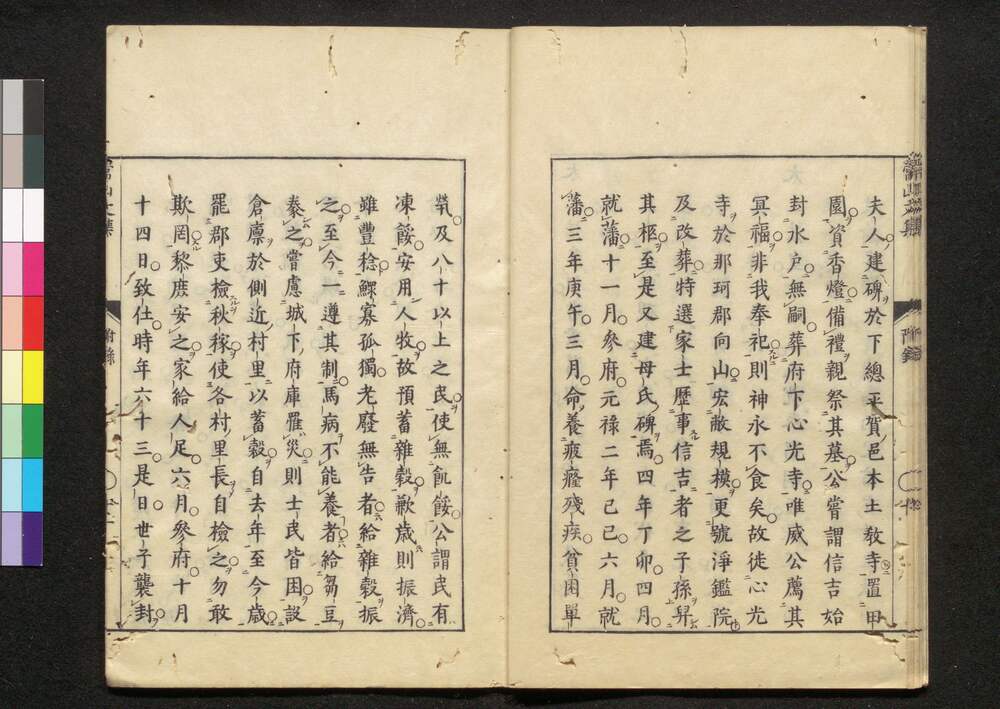 夫人建碑於下總平賀邑本土教寺置田
園資香燈備禮親祭其墓公嘗謂信吉始
封水戶無嗣葬府下心光寺唯威公薦其
冥福非我奉祀則神永不食矣故徙心光
寺於那珂郡向山宏敞規模更號淨鑑院
及改葬特選家士歷事信吉者之子孫舁
其柩至是又建母氏碑焉四年丁卯四月
就藩十一月參府元祿二年己巳六月就
藩三年庚午三月命養疲癃殘疾貧困單
煢及八十以上之民使無飢餒公謂民有
凍餒安用人牧故預蓄雜穀歉歲則振濟
雖豐稔鰥寡孤獨老廢無告者給雜穀振
之至今一遵其制馬病不能養者給芻豆
豢之嘗慮城下府庫罹災則士民皆困設
倉廩於側近村里以蓄穀自去年至今歲
罷郡吏檢秋稼使各村里長自檢之勿敢
欺罔黎庶安之家給人足六月參府十月
十四日致仕時年六十三是日世子襲封
附錄